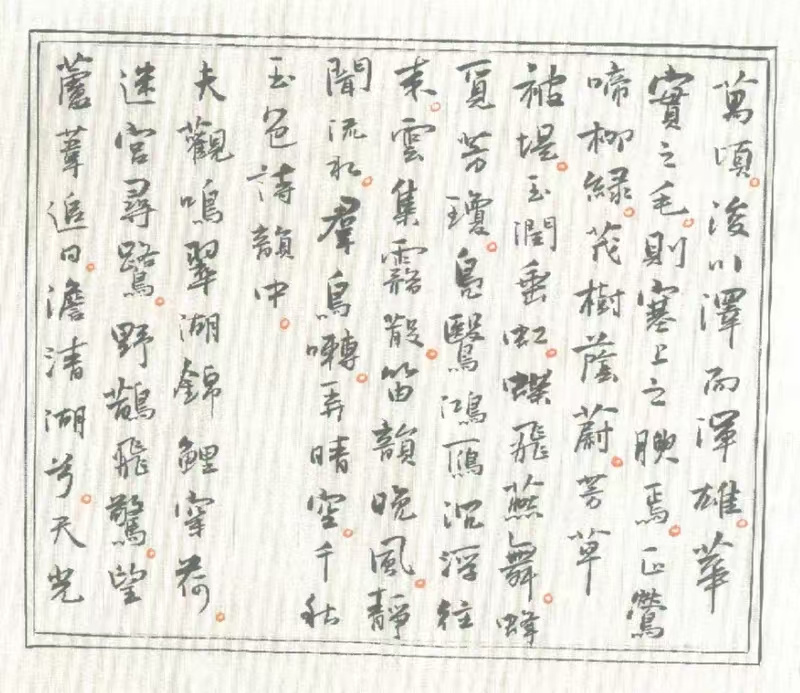 萬頃。浚川澤而渾雄。華
實之毛。則塞上之腴焉。正鶯
啼柳綠。茂樹蔭蔚。芳草
被堤。玉潤垂虹。蝶飛燕舞。蜂
覓芳瓊。鳧鷖鴻雁。沉浮往
来。雲集霧散。笛韻晚風。靜
聞流水。羣鳥囀。弄晴空。千秋
玉色詩韻中。
夫觀鳴翠湖。錦鯉穿荷。
迷宮尋鷺。野鵲飛驚。望
蘆葦追日。澹清湖兮。天光